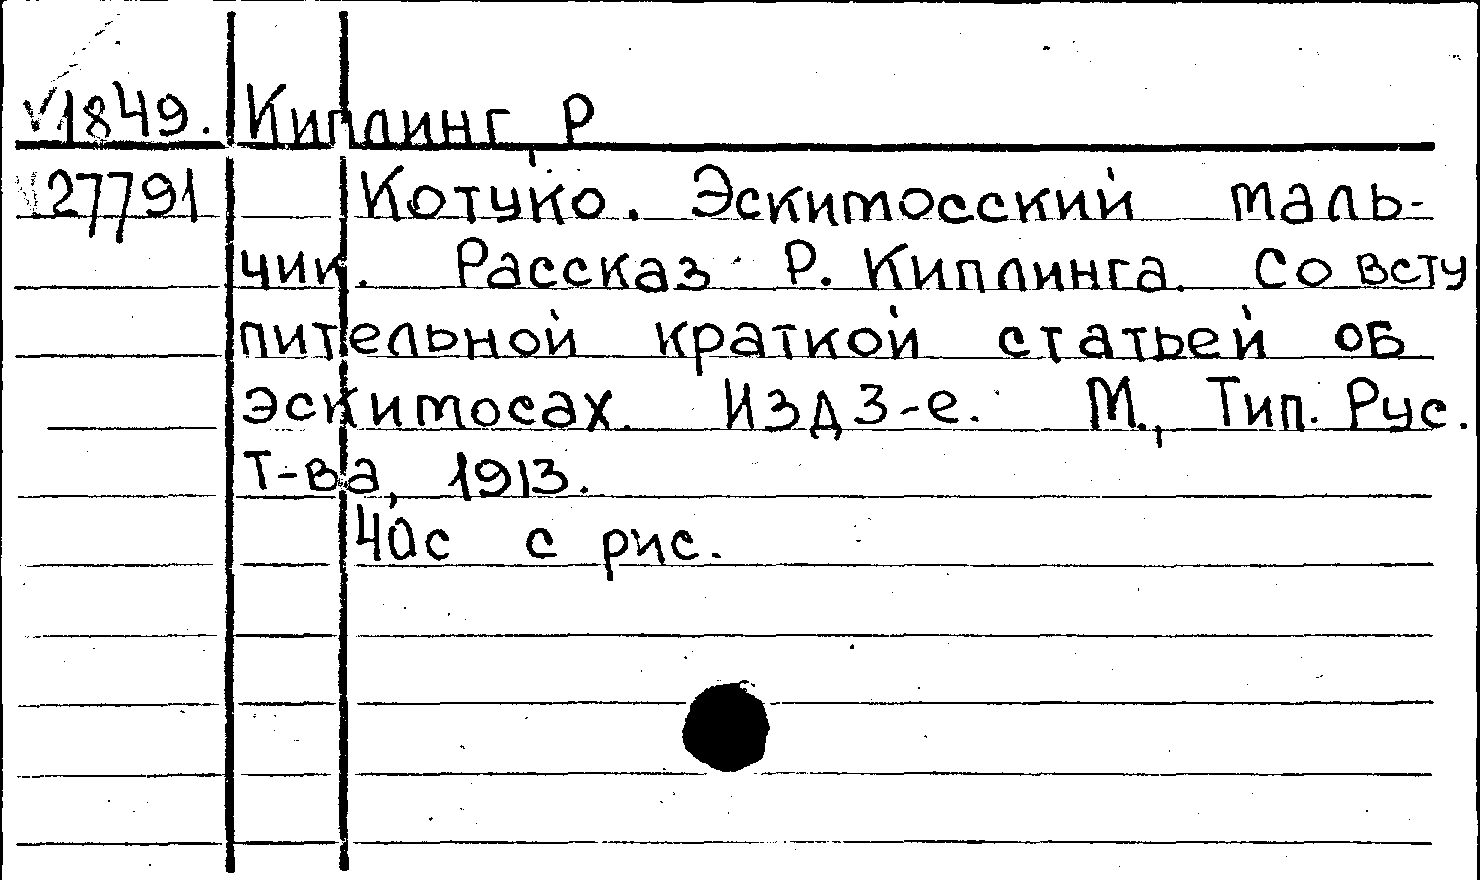 1849. Киплинг, Р
27791 Котуко. Эскимосский маль-
чик. Рассказ Р. Киплинга. Со всту
пительной краткой статьей об
эскимосах. Изд 3-е. М., Тип. Рус.
Т-ва, 1913.
40с с рис.